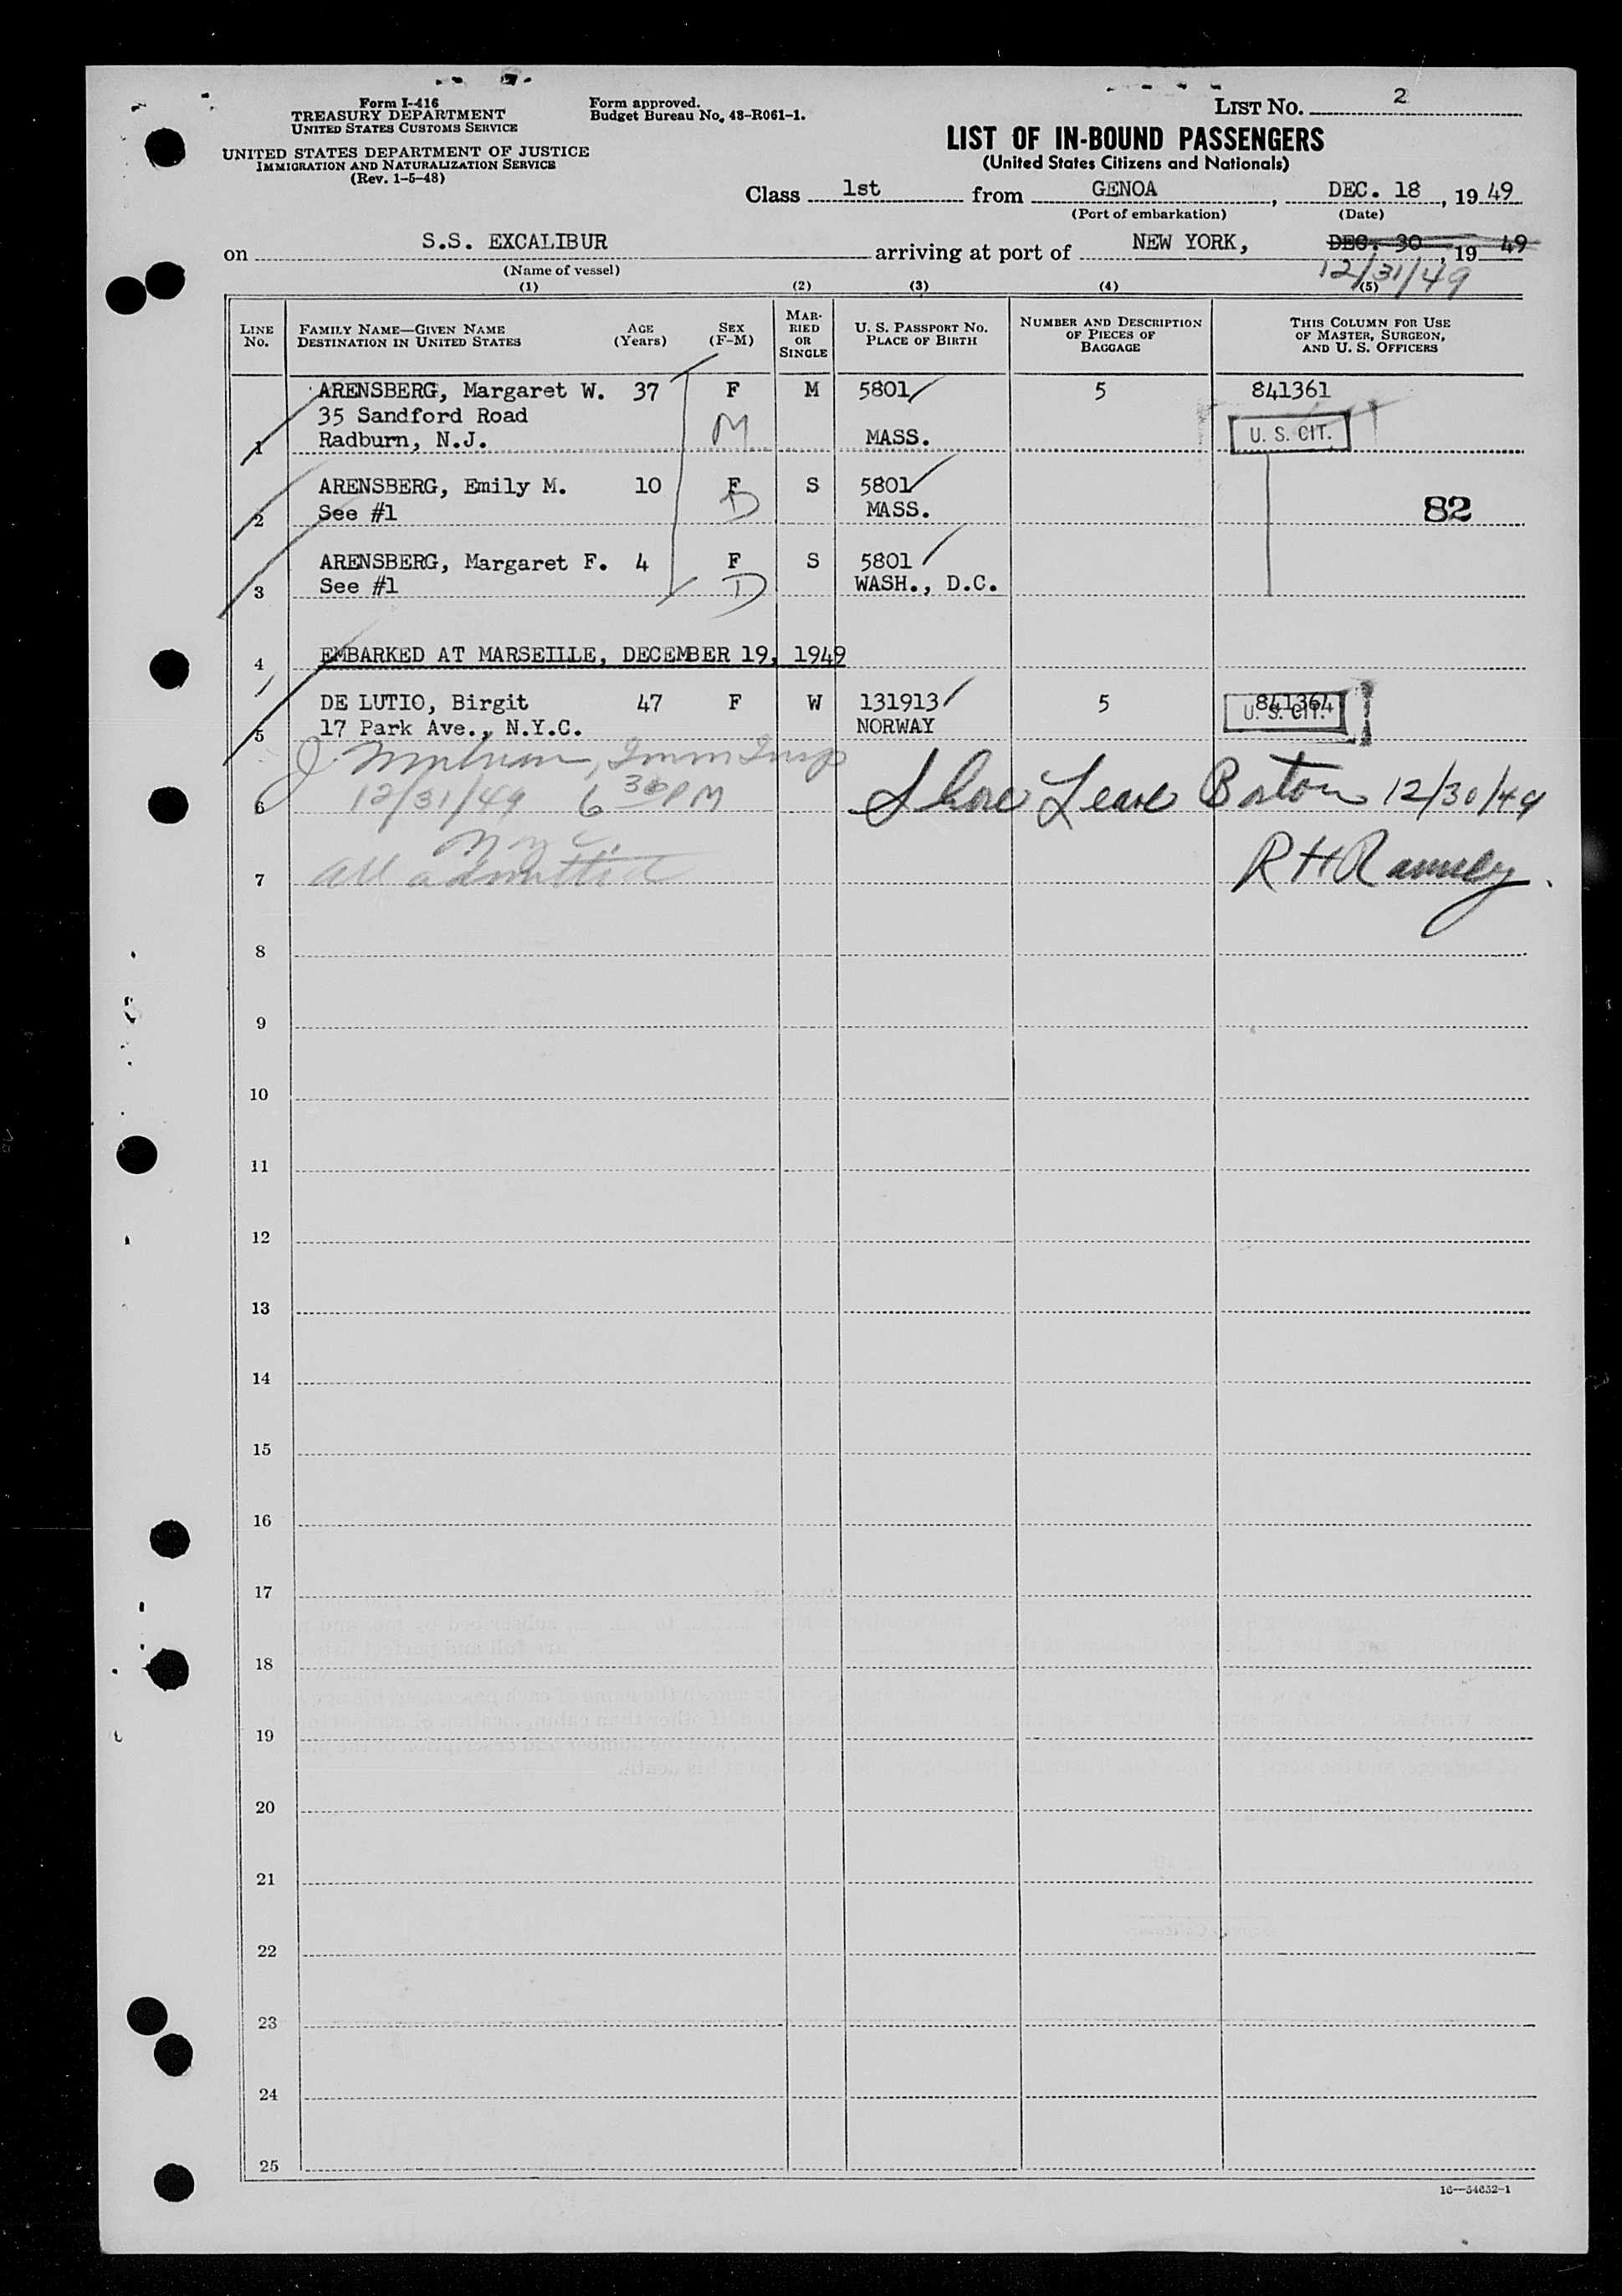 Form I-416
TREASURY DEPARTMENT
UNITED STATES CUSTOMS SERVICE
UNITED STATES DEPARTMENT OF JUSTICE
IMMIGRATION AND NATURALIZATION SERVICE
(Rev. 1-5-48)
Form approved.
Budget Bureau No. 48-R061-1.
LIST NO. 2
LIST OF IN-BOUND PASSENGERS
(United States Citizens and Nationals)
Class 1st from GENOA, DEC. 18, 1949
(Port of embarkation) (Date)
on S.S. EXCALIBUR arriving at port of NEW YORK, DEC. 30, 1949
(Name of vessel) 12/31/49
(1) (2) (3) (4) (5)
LINE No.
FAMILY NAME—GIVEN NAME
DESTINATION IN UNITED STATES
AGE (Years)
SEX (F-M)
MARRIED OR SINGLE
U. S. PASSPORT NO.
PLACE OF BIRTH
NUMBER AND DESCRIPTION OF PIECES OF BAGGAGE
THIS COLUMN FOR USE OF MASTER, SURGEON, AND U. S. OFFICERS
ARENSBERG, Margaret W. 37 F M 5801 5 841361
35 Sandford Road M
1 Radburn, N.J. MASS. U. S. CIT.
ARENSBERG, Emily M. 10 F S 5801
2 See #1 D MASS. 82
ARENSBERG, Margaret F. 4 F S 5801
3 See #1 D WASH., D.C.
4 EMBARKED AT MARSEILLE, DECEMBER 19, 1949
DE LUTIO, Birgit 47 F W 131913 5 841364
5 17 Park Ave., N.Y.C. NORWAY U. S. CIT.
Imm Insp
6 12/31/49 6 30 PM Shore Leave Boston 12/30/49
N Y C.
7 all admitted R H Ramsey.
8
9
10
11
12
13
14
15
16
17
18
19
20
21
22
23
24
25
16—54632-1